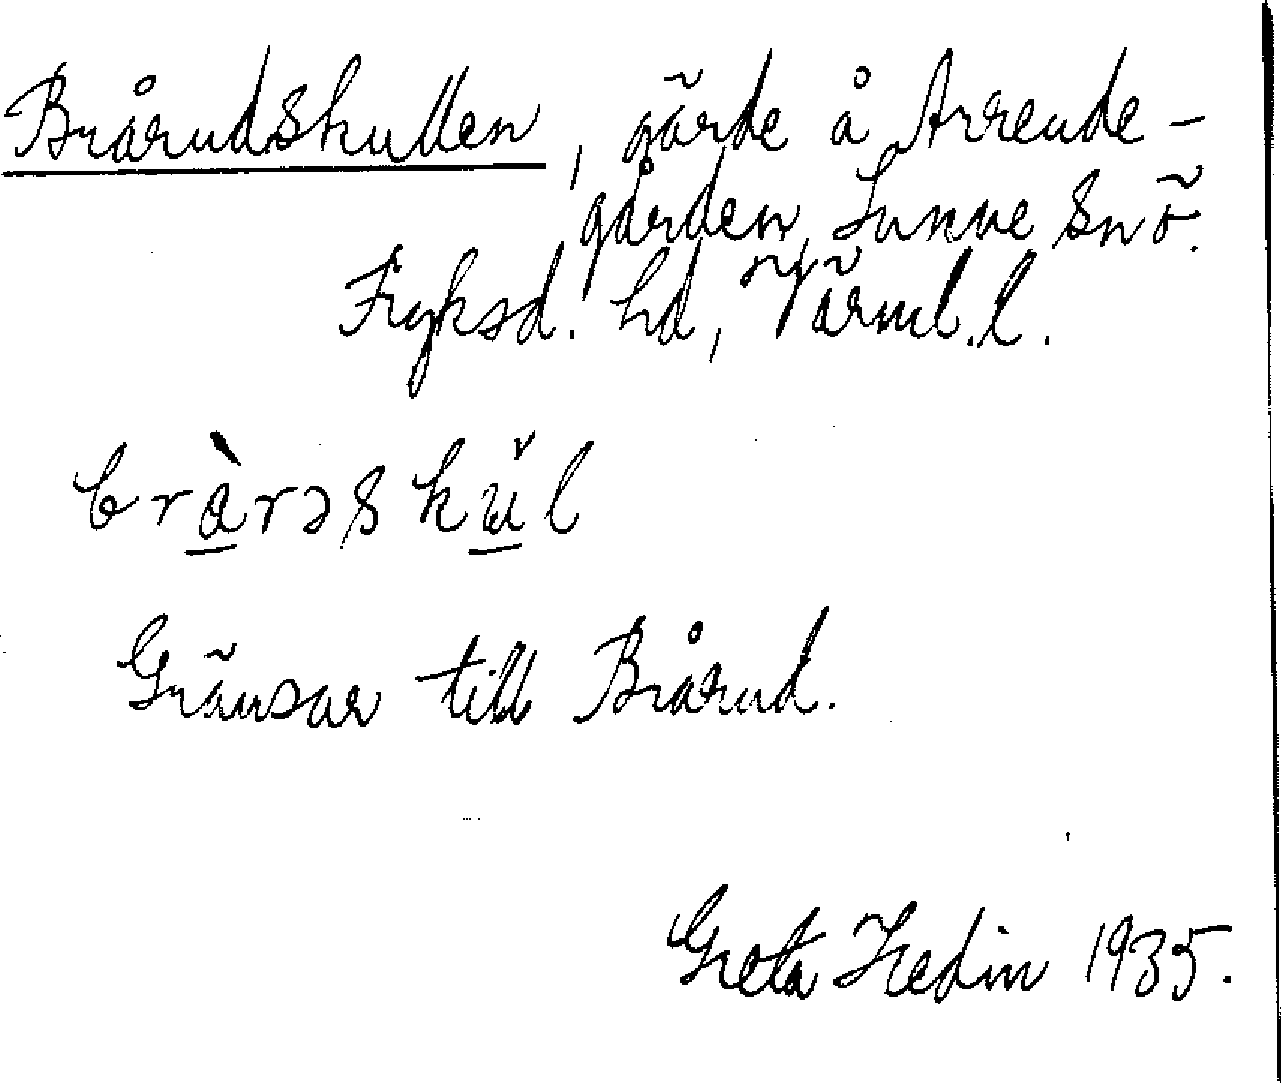 Brårudskullen, gärde å Arrende-
gården, Sunne sn ö.
Fryksd. hd, Värml.l.
bràrəskŭl
Gränsar till Brårud.
Greta Hedin 1935.